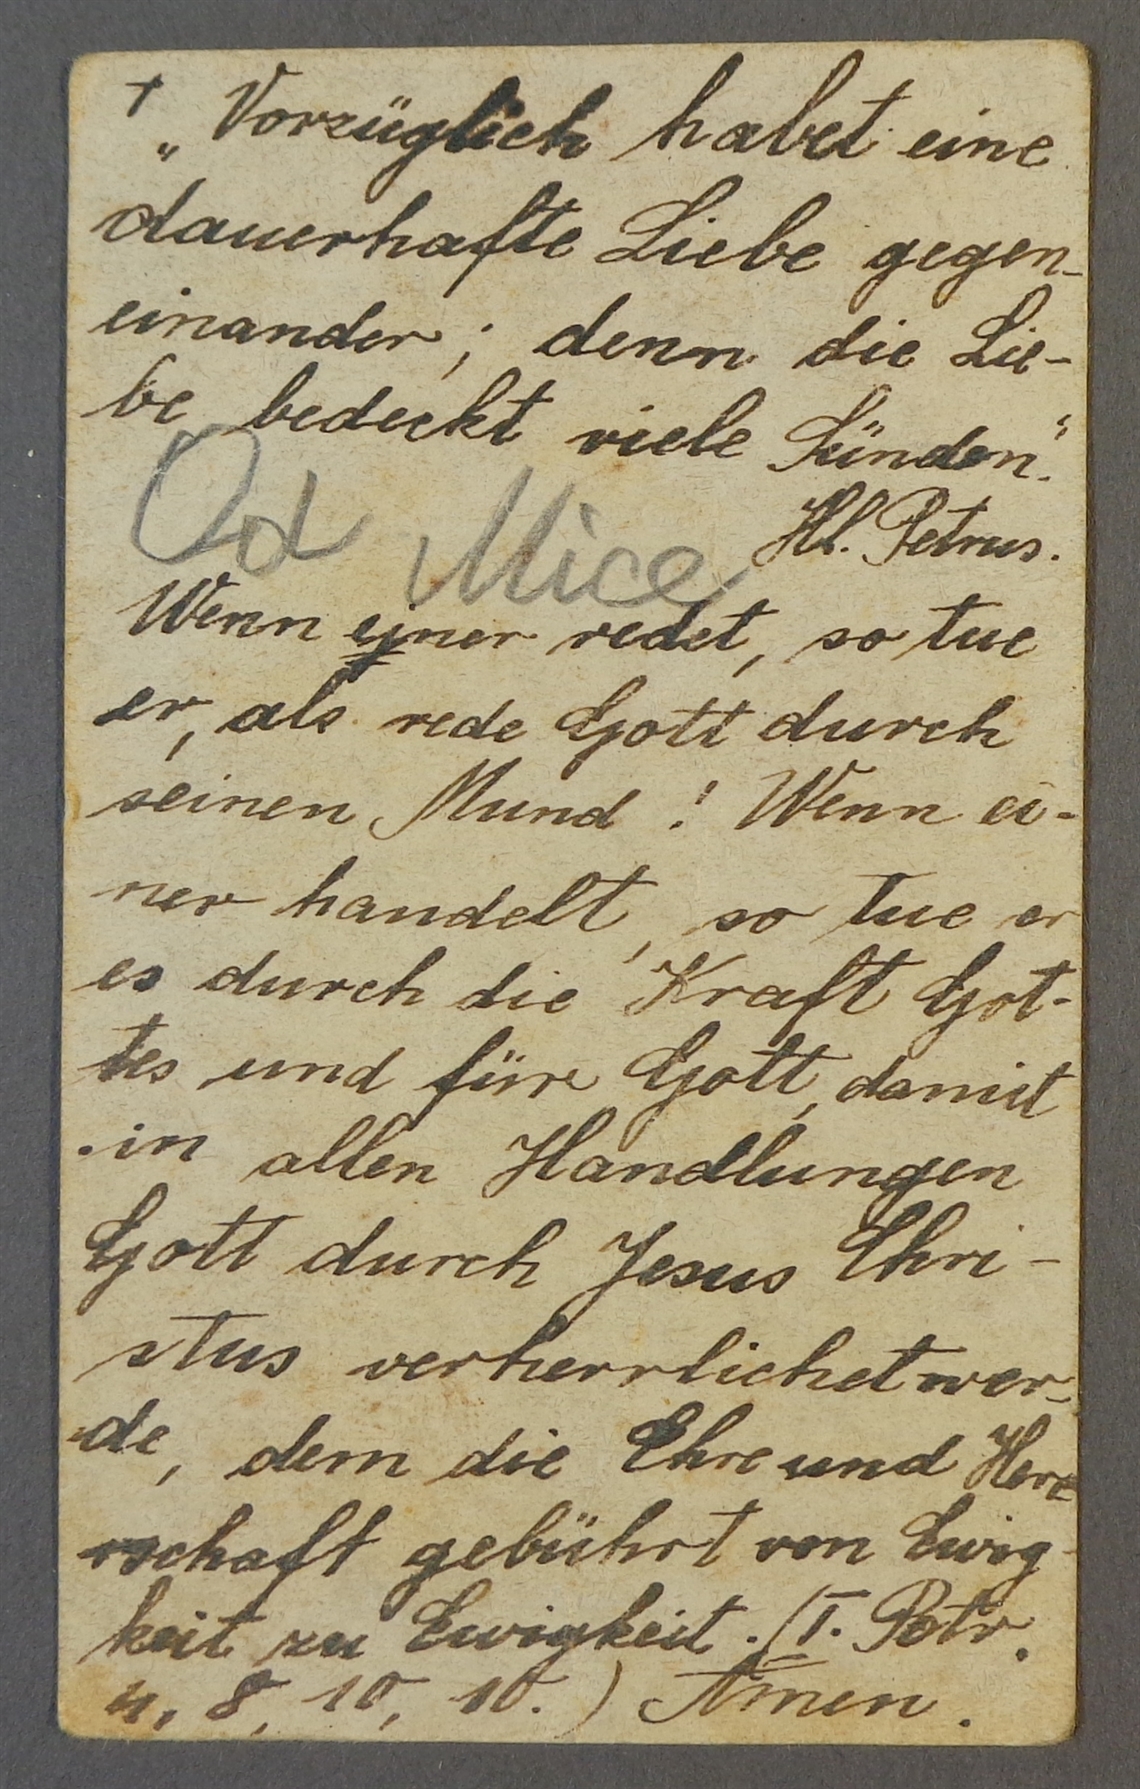 + „Vorzüglich habet eine
dauerhafte Liebe gegen-
einander; denn die Lie-
be bedeckt viele Sünden.“
Hl. Petrus.
Od Mice
Wenn einer redet, so tue
er, als rede Gott durch
seinen Mund! Wenn ei-
ner handelt, so tue er
es durch die Kraft Got-
tes und für Gott, damit
in allen Handlungen
Gott durch Jesus Chri-
stus verherrlichet wer-
de, dem die Ehre und Herr
rschaft gebührt von Ewig-
keit zu Ewigkeit. (I. Petr.
4, 8, 10, 10.) Amen.